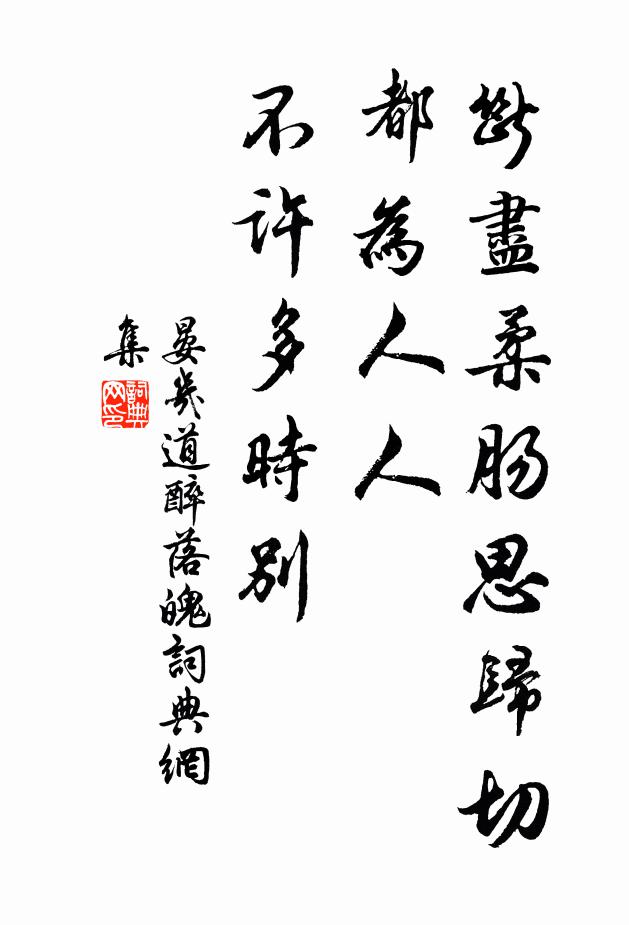 斷盡柔腸思歸切
都為人人
不許多時別
晏幾道醉落魄詞典網
集
詞典網印